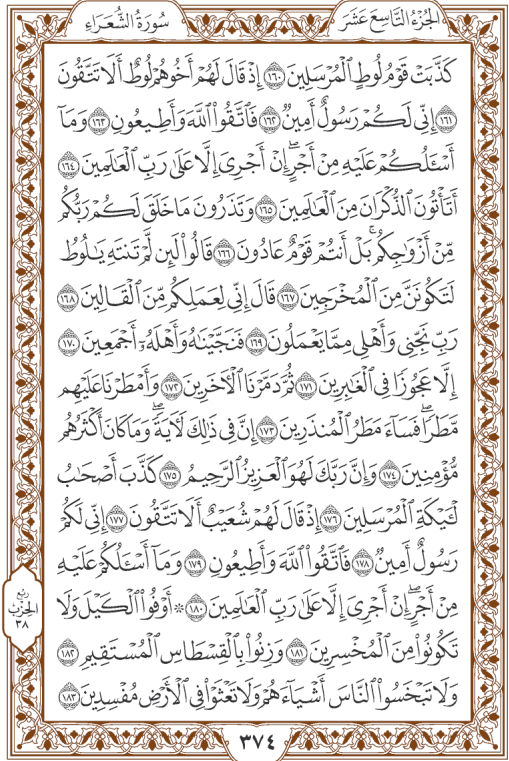 الجُزْءُ التَّاسِعَ عَشَرَ سُورَةُ الشُّعَرَاءِ
كَذَّبَتْ قَوْمُ لُوطٍ ٱلْمُرْسَلِينَ ١٦٠ إِذْ قَالَ لَهُمْ أَخُوهُمْ لُوطٌ أَلَا تَتَّقُونَ
١٦١ إِنِّى لَكُمْ رَسُولٌ أَمِينٌ ١٦٢ فَٱتَّقُوا۟ ٱللَّهَ وَأَطِيعُونِ ١٦٣ وَمَآ
أَسْـَٔلُكُمْ عَلَيْهِ مِنْ أَجْرٍ ۖ إِنْ أَجْرِىَ إِلَّا عَلَىٰ رَبِّ ٱلْعَـٰلَمِينَ ١٦٤
أَتَأْتُونَ ٱلذُّكْرَانَ مِنَ ٱلْعَـٰلَمِينَ ١٦٥ وَتَذَرُونَ مَا خَلَقَ لَكُمْ رَبُّكُم
مِّنْ أَزْوَٰجِكُم ۚ بَلْ أَنتُمْ قَوْمٌ عَادُونَ ١٦٦ قَالُوا۟ لَئِن لَّمْ تَنتَهِ يَـٰلُوطُ
لَتَكُونَنَّ مِنَ ٱلْمُخْرَجِينَ ١٦٧ قَالَ إِنِّى لِعَمَلِكُم مِّنَ ٱلْقَالِينَ ١٦٨
رَبِّ نَجِّنِى وَأَهْلِى مِمَّا يَعْمَلُونَ ١٦٩ فَنَجَّيْنَـٰهُ وَأَهْلَهُۥٓ أَجْمَعِينَ ١٧٠
إِلَّا عَجُوزًا فِى ٱلْغَـٰبِرِينَ ١٧١ ثُمَّ دَمَّرْنَا ٱلْـَٔاخَرِينَ ١٧٢ وَأَمْطَرْنَا عَلَيْهِم
مَّطَرًا ۖ فَسَآءَ مَطَرُ ٱلْمُنذَرِينَ ١٧٣ إِنَّ فِى ذَٰلِكَ لَـَٔايَةً ۖ وَمَا كَانَ أَكْثَرُهُم
مُّؤْمِنِينَ ١٧٤ وَإِنَّ رَبَّكَ لَهُوَ ٱلْعَزِيزُ ٱلرَّحِيمُ ١٧٥ كَذَّبَ أَصْحَـٰبُ
لْـَٔيْكَةِ ٱلْمُرْسَلِينَ ١٧٦ إِذْ قَالَ لَهُمْ شُعَيْبٌ أَلَا تَتَّقُونَ ١٧٧ إِنِّى لَكُمْ
رَسُولٌ أَمِينٌ ١٧٨ فَٱتَّقُوا۟ ٱللَّهَ وَأَطِيعُونِ ١٧٩ وَمَآ أَسْـَٔلُكُمْ عَلَيْهِ
مِنْ أَجْرٍ ۖ إِنْ أَجْرِىَ إِلَّا عَلَىٰ رَبِّ ٱلْعَـٰلَمِينَ ١٨٠ ۞ أَوْفُوا۟ ٱلْكَيْلَ وَلَا
تَكُونُوا۟ مِنَ ٱلْمُخْسِرِينَ ١٨١ وَزِنُوا۟ بِٱلْقِسْطَاسِ ٱلْمُسْتَقِيمِ ١٨٢
وَلَا تَبْخَسُوا۟ ٱلنَّاسَ أَشْيَآءَهُمْ وَلَا تَعْثَوْا۟ فِى ٱلْأَرْضِ مُفْسِدِينَ ١٨٣
ربع
الحزب
٣٨
٣٧٤